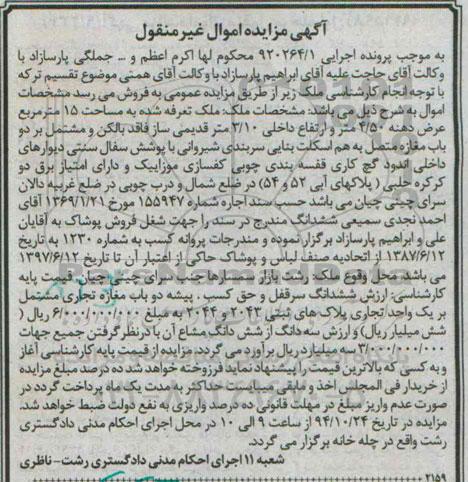 آگهی مزایده اموال غیر منقول
به موجب پرونده اجرایی ۹۲۰۲۶۴/۱ محکوم لها اکرم اعظم و ... جملگی پارسازاد با
وکالت آقای حاجت علیه آقای ابراهیم پارسازاد با وکالت آقای همتی موضوع تقسیم ترکه
با توجه انجام کارشناسی ملک زیر از طریق مزایده عمومی به فروش می رسد مشخصات
اموال به شرح ذیل می باشد: مشخصات ملک: ملک تعرفه شده به مساحت ۱۵ مترمربع
عرض دهنه ۴/۵۰ متر و ارتفاع داخلی ۳/۱۰ متر قدیمی ساز فاقد بالکن و مشتمل بر دو
باب مغازه متصل به هم اسکلت بنایی سربندی شیروانی با پوشش سفال سنتی دیوارهای
داخلی اندود گچ کاری قفسه بندی چوبی کفسازی موزاییک و دارای امتیاز برق دو
کرکره حلبی ( پلاکهای آبی ۵۲ و ۵۴) در ضلع شمال و درب چوبی در ضلع غربیه دالان
سرای چینی چیان می باشد حسب سند اجاره شماره ۱۵۵۹۴۷ مورخ ۱۳۶۹/۱/۲۱ آقای
احمد نجدی سمیعی ششدانگ مندرج در سند را جهت شغل فروش پوشاک به آقایان
علی و ابراهیم پارسازاد برگزار نموده و مندرجات پروانه کسب به شماره ۱۲۳۰ به تاریخ
۱۳۸۷/۶/۱۲ از اتحادیه صنف لباس و پوشاک حاکی از اعتبار آن تا تاریخ ۱۳۹۷/۶/۱۲
می باشد. محل وقوع ملک: رشت بازار سمسارها جنب سرای چینی چیان. قیمت پایه
کارشناسی: ارزش ششدانگ سرقفل و حق کسب . پیشه دو باب مغازه تجاری مشتمل
بر یک واحد تجاری پلاک های ثبتی ۲۰۴۳ و ۲۰۴۴ به مبلغ ۶/۰۰۰/۰۰۰/۰۰۰ ریال (
شش میلیار ریال) و ارزش سه دانگ از شش دانگ مشاع آن با درنظر گرفتن جمیع جهات
۳/۰۰۰/۰۰۰/۰۰۰ سه میلیارد ریال برآورد می گردد. مزایده از قیمت پایه کارشناسی آغاز
و به کسی که بالاترین قیمت را پیشنهاد نماید فرزوخته خواهد شد ده درصد مبلغ مزایده
از خریدار فی المجلس اخذ و مابقی می بایست حداکثر به مدت یک ماه پرداخت گردد در
صورت عدم واریز مبلغ در مهلت قانونی ده درصد واریزی به نفع دولت ضبط خواهد شد.
مزایده در تاریخ ۹۴/۱۰/۲۴ از ساعت ۹ الی ۱۰ در محل اجرای احکام مدنی دادگستری
رشت واقع در چله خانه برگزار می گردد.
شعبه ۱۱ اجرای احکام مدنی دادگستری رشت- ناظری
۲۱۵۹